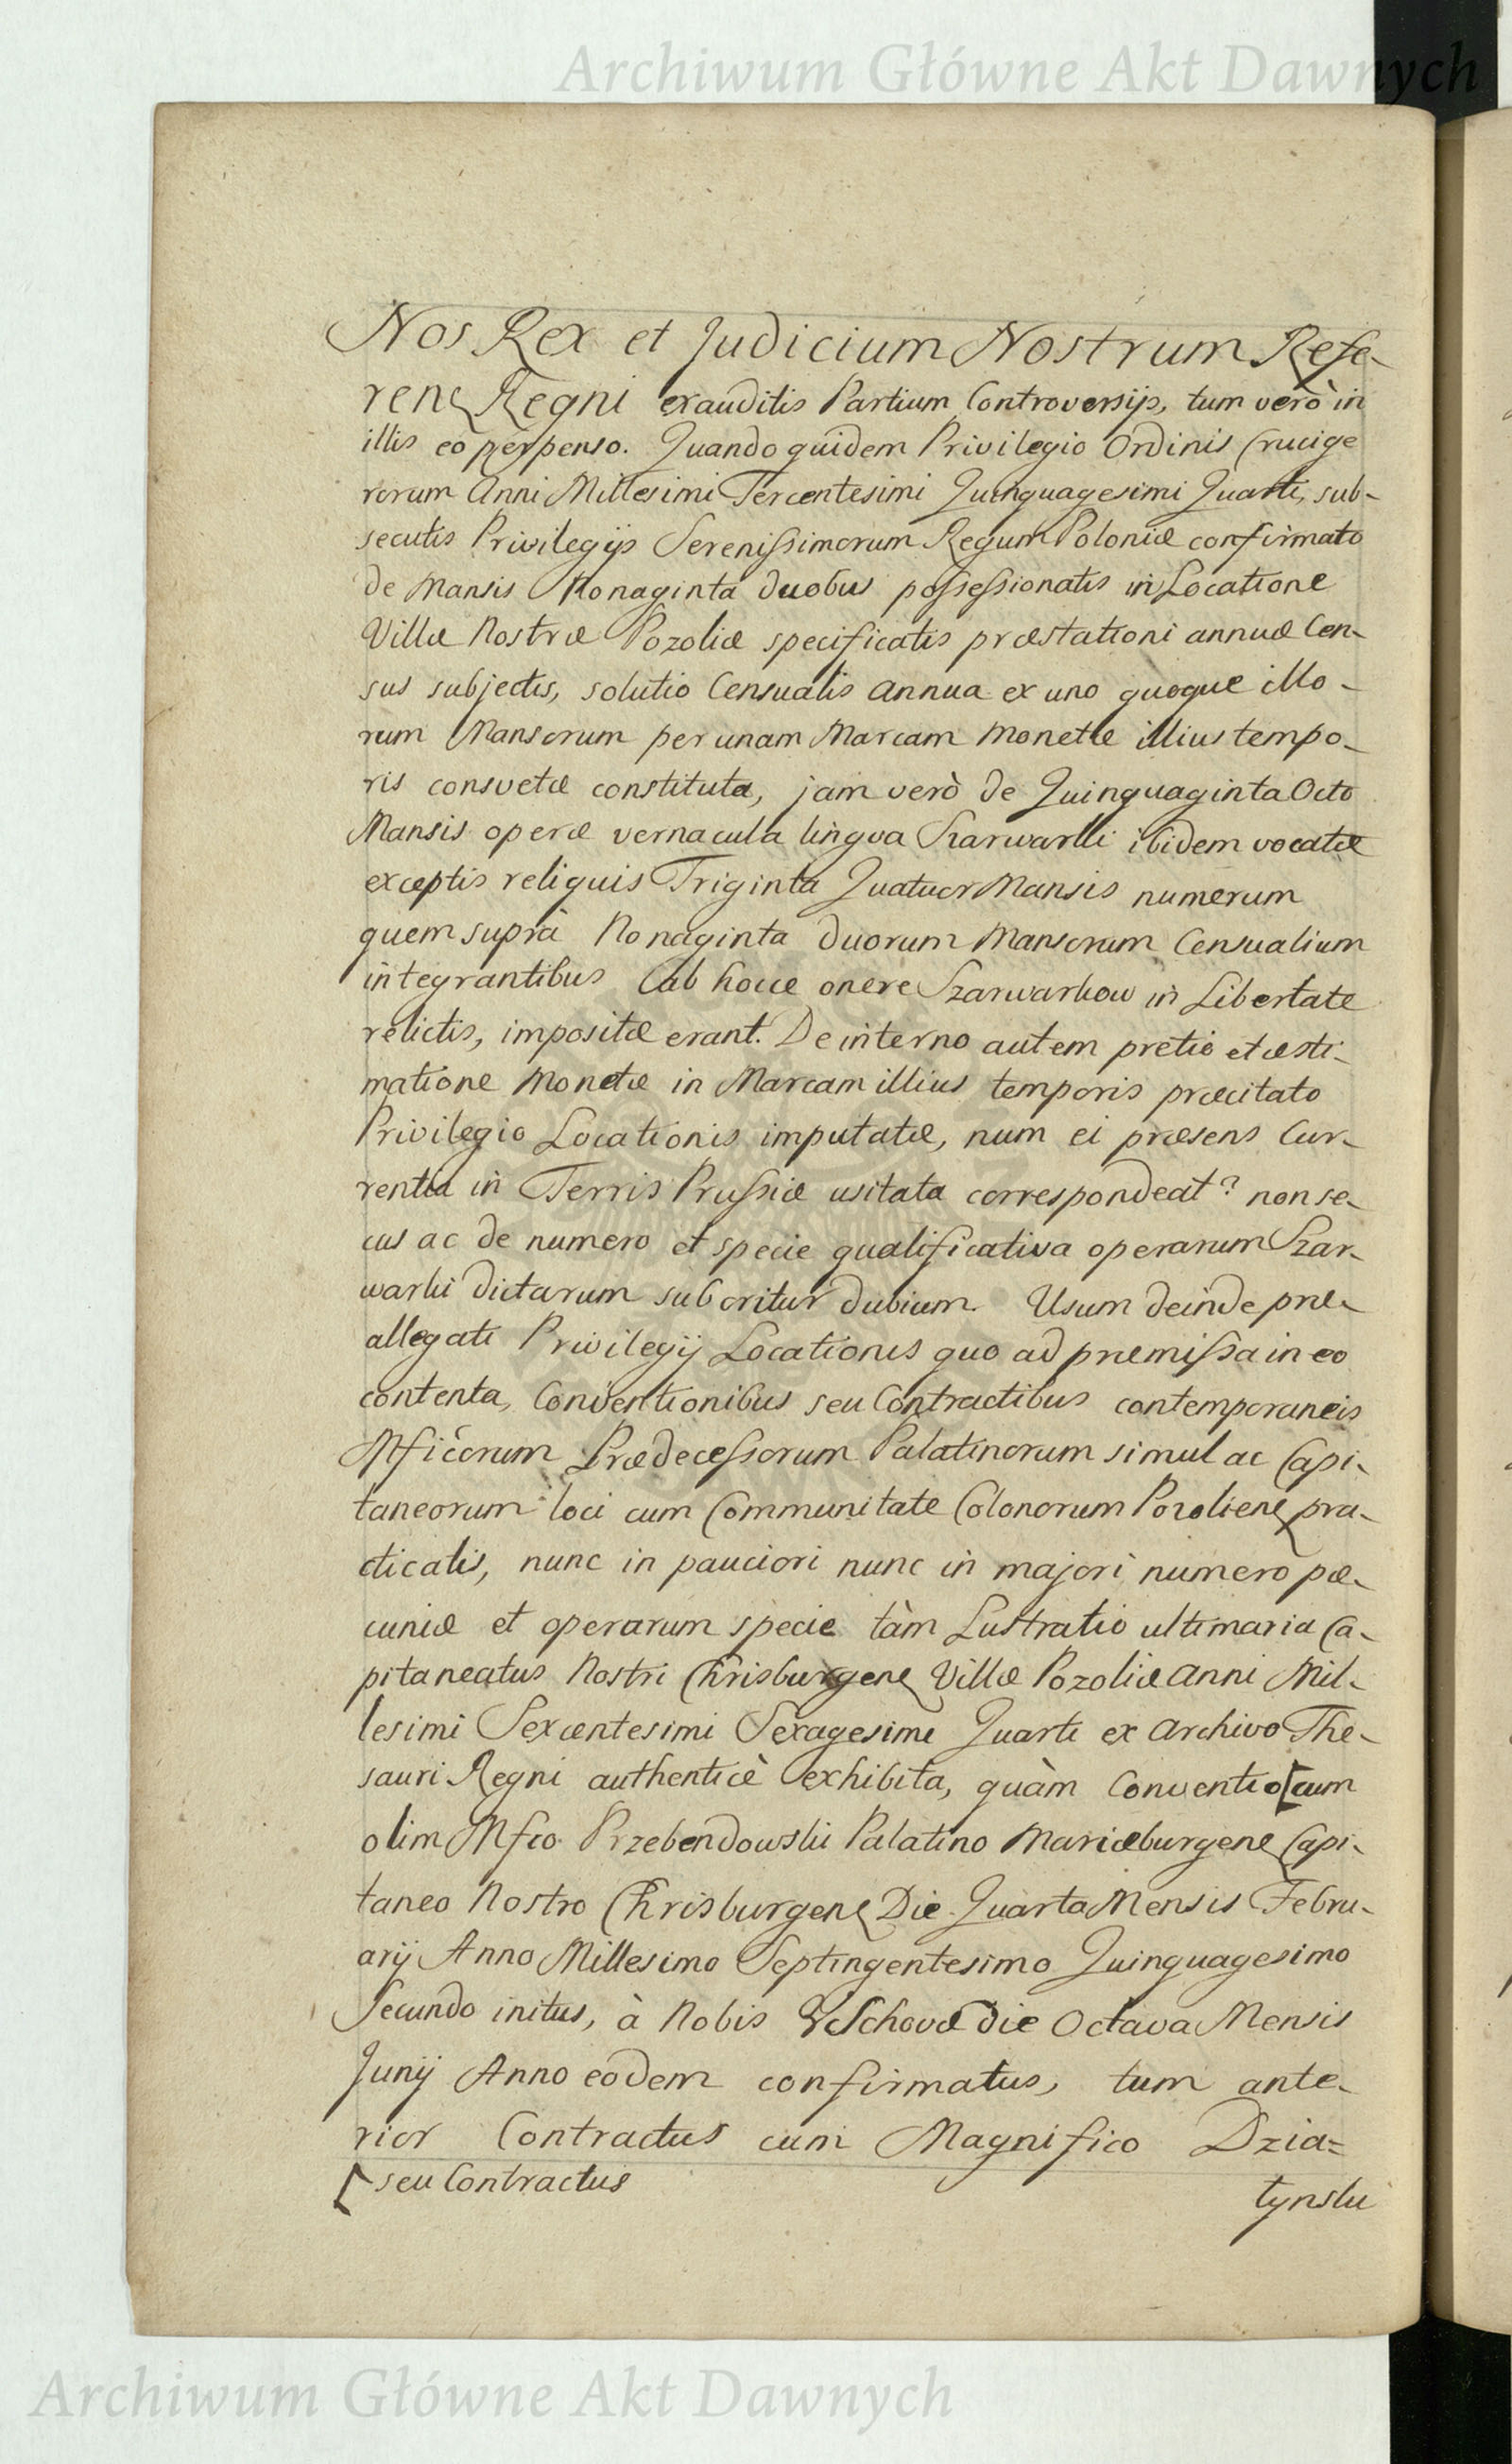 Archiwum Główne Akt Dawnych
Nos Rex et Judicium Nostrum Refe-
ren Regni exauditis Partium Controversijs, tum verò in
illis eo perpenso. Quando quidem Privilegio Ordinis Crucige
rorum Anni Millesimi Tercentesimi Quinquagesimi Quarti, sub-
secutis Privilegijs Serenissimorum Regum Poloniæ confirmato
de Mansis Nonaginta duobus possessionatis in Locatione
Villæ Nostræ Pozoliæ specificatis præstationi annuæ Cen-
sus subjectis, solutio Censualis annua ex uno quoque illo-
rum Mansorum per unam Marcam Monetæ illius tempo-
ris consvetæ constituta, jam verò de Quinquaginta Octo
Mansis operæ vernacula lingva Szarwarki ibidem vocatæ
exceptis reliquis Triginta Quatuor Mansis numerum
quem suprà Nonaginta duorum Mansorum Censualium
integrantibus (ab hocce onere Szarwarkow in Libertate
relictis, impositæ erant. De interno autem pretio et æsti-
matione Monetæ in Marcam illius temporis præcitato
Privilegio Locationis imputatæ, num ei præsens Cur-
rentia in Terris Prussiæ usitata correspondeat? non se-
cus ac de numero et specie qualificativa operarum Szar-
warki dictarum suboritur dubium. Usum deinde præ-
allegati Privilegij Locationis quo ad præmissa in eo
contenta, Conventionibus seu Contractibus contemporaneis
Mficorum Prædecessorum Palatinorum simul ac Capi-
taneorum loci cum Communitate Colonorum Pozolien pra-
cticatis, nunc in pauciori nunc in majori numero pæ-
cuniæ et operarum specie tàm Lustratio ultimaria Ca-
pitaneatus Nostri Chrisburgen Villæ Pozoliæ anni Mil-
lesimi Sexcentesimi Sexagesimi Quarti ex Archivo The-
sauri Regni authenticè exhibita, quàm Conventio [cum
olim Mfco Przebendowski Palatino Mariæburgen Capi-
taneo Nostro Chrisburgen Die Quarta Mensis Febru-
arij Anno Millesimo Septingentesimo Quinquagesimo
Secundo initus, à Nobis Vschovæ die Octava Mensis
Junij Anno eodem confirmatus, tum ante-
rior Contractus cum Magnifico Dzia=
[seu Contractus
tynski
Archiwum Główne Akt Dawnych